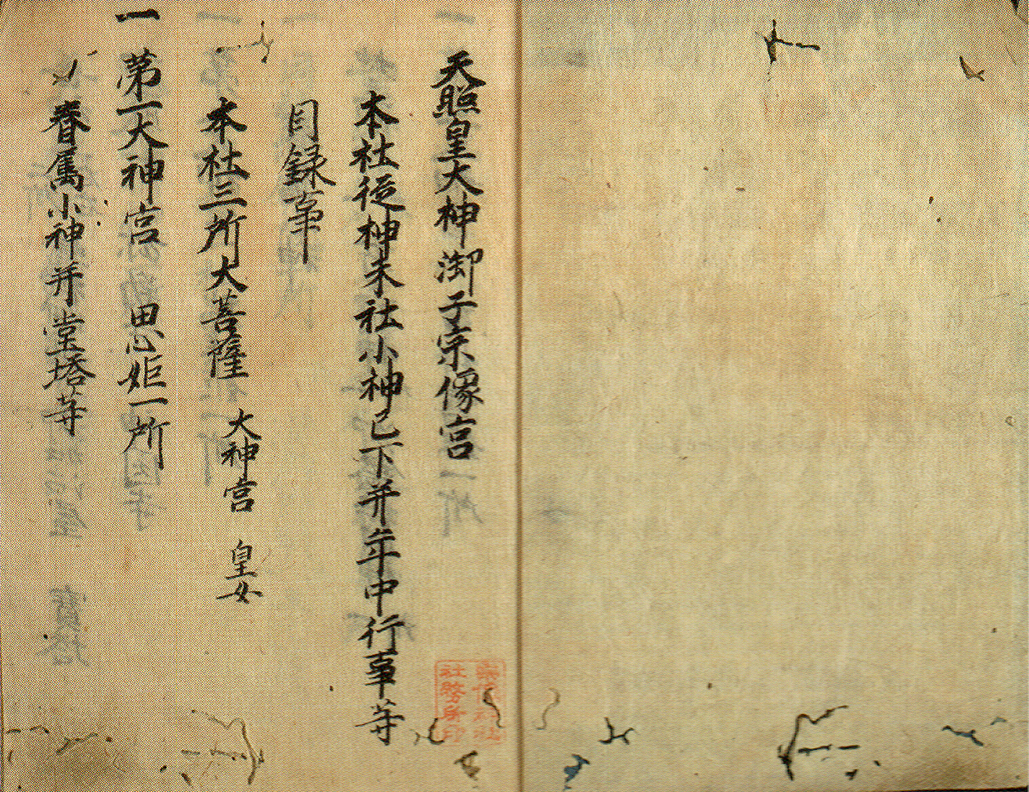 天照皇大神御子宗像宮
本社従神末社小神已下并年中行事等
目録事
本社三所大菩薩 大神宮 皇女
一 第一大神宮 思姫一所
眷属小神并堂塔等
宗像神社
社務所印